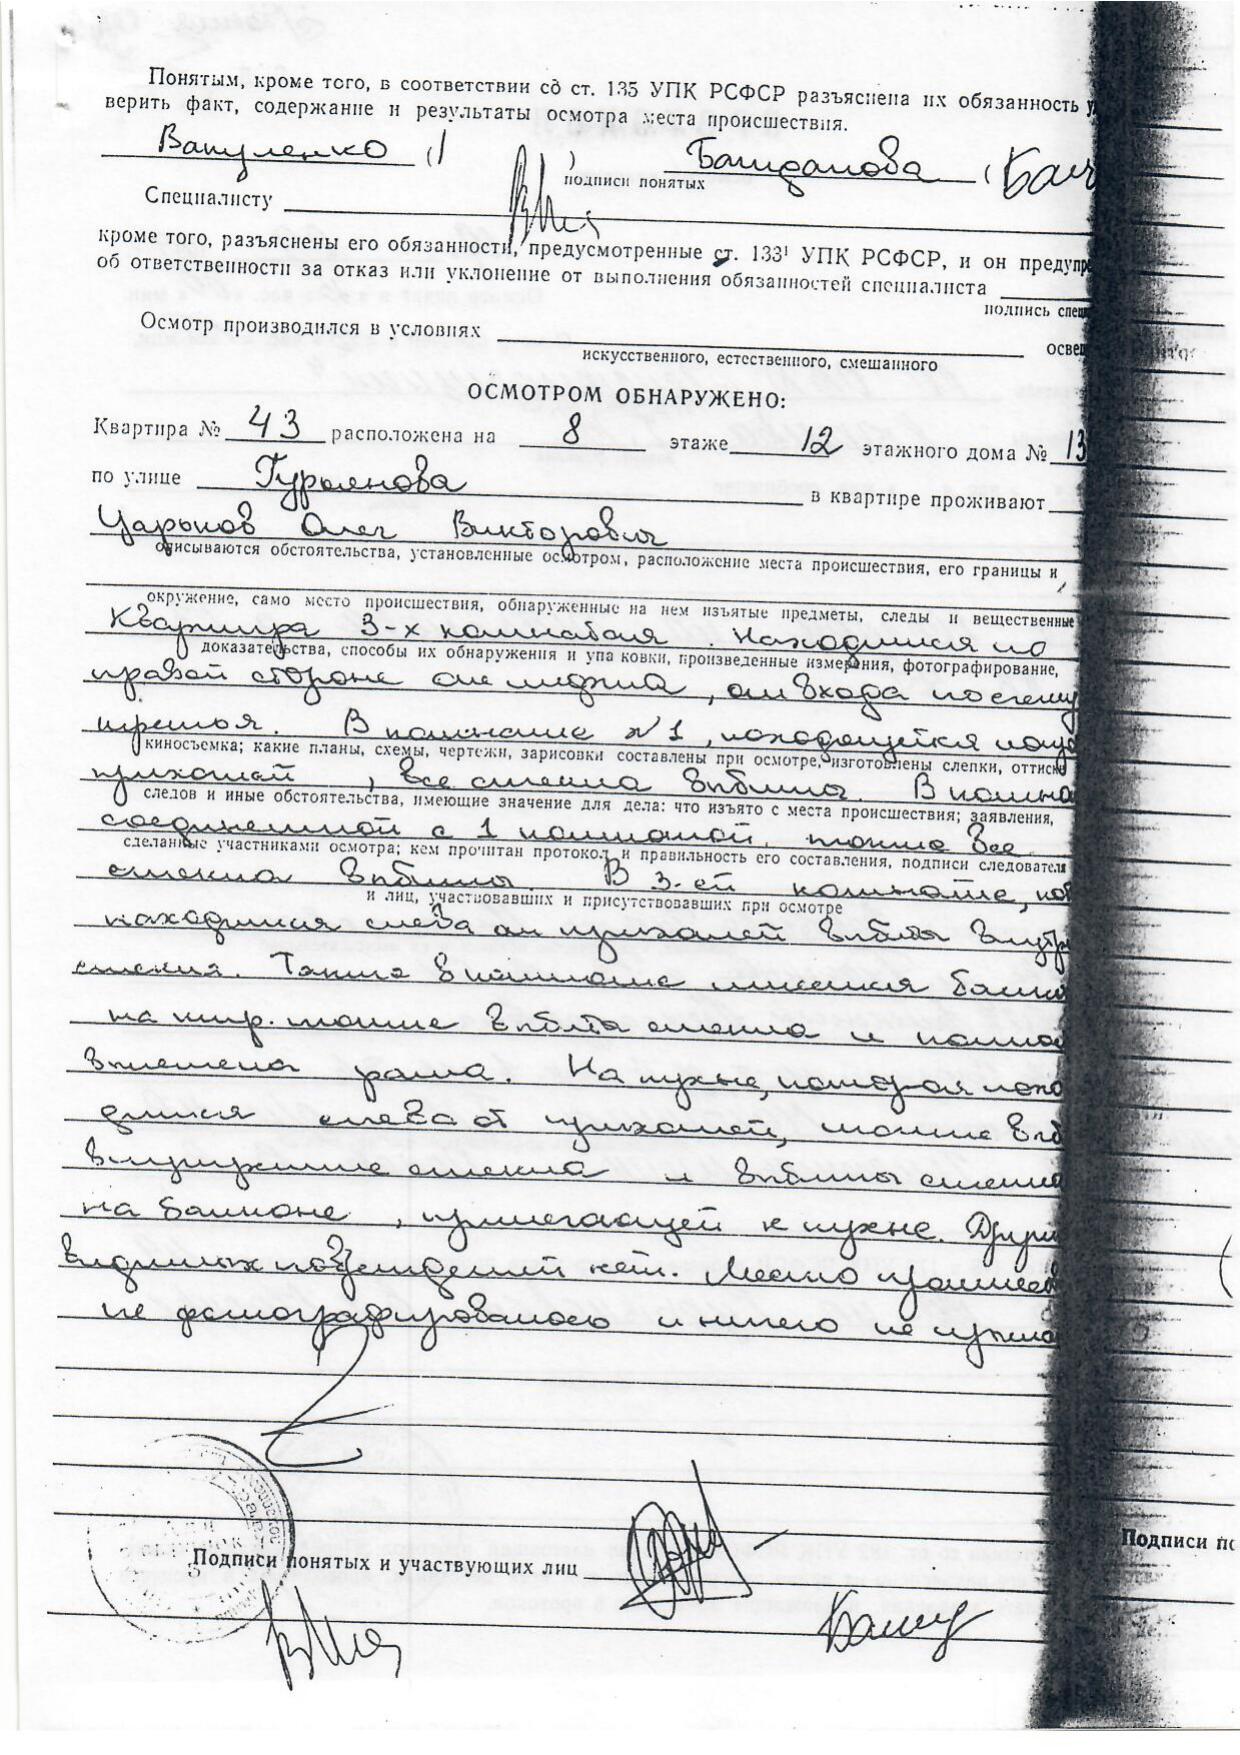 Понятым, кроме того, в соответствии со ст. 135 УПК РСФСР разъяснена их обязанность у
верить факт, содержание и результаты осмотра места происшествия.
Вакуленко ( ) ( Баш
подписи понятых
Специалисту
кроме того, разъяснены его обязанности, предусмотренные ст. 133¹ УПК РСФСР, и он предупре
об ответственности за отказ или уклонение от выполнения обязанностей специалиста
подпись спец
Осмотр производился в условиях освещ
искусственного, естественного, смешанного
ОСМОТРОМ ОБНАРУЖЕНО:
Квартира № 43 расположена на 8 этаже 12 этажного дома № 13
по улице Гурьянова в квартире проживают
Царьков Олег Викторович
описываются обстоятельства, установленные осмотром, расположение места происшествия, его границы и
окружение, само место происшествия, обнаруженные на нем изъятые предметы, следы и вещественные
Квартира 3-х комнатная. Находится по
доказательства, способы их обнаружения и упа ковки, произведенные измерения, фотографирование,
правой стороне от лифта, от входа по счету
третья. В комнате №1, находящейся
киносъемка; какие планы, схемы, чертежи, зарисовки составлены при осмотре, изготовлены слепки, оттиски
прихожей, все стекла выбиты. В комна
следов и иные обстоятельства, имеющие значение для дела: что изъято с места происшествия; заявления,
соединенной с 1 комнатой, также все
сделанные участниками осмотра; кем прочитан протокол и правильность его составления, подписи следователя
стекла выбиты. В 3-ей комнате, кот
и лиц, участвовавших и присутствовавших при осмотре
находится слева от прихожей выбиты внутр
стекла. Также в комнате имеется балкон
на котор. также выбиты стекла и
рама. На кухне, которая нахо
дится слева от прихожей, также выб
внутренние стекла и выбиты стекла
на балконе, прилегающей к кухне. Други
видимых повреждений нет. Место происшест
не фотографировалось и ничего не изыма
Подписи понятых и участвующих лиц
Подписи по